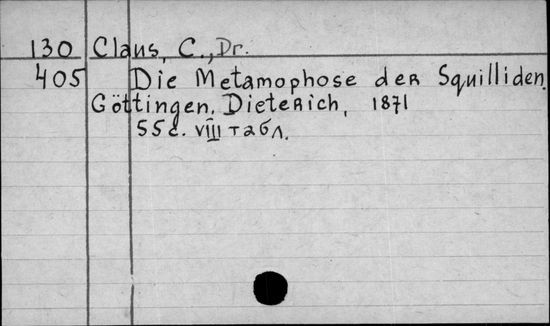 130 Claus, C., Dr.
405 Die Metamophose der Squilliden.
Göttingen, Dieterich, 1871
55 с. VIII табл.